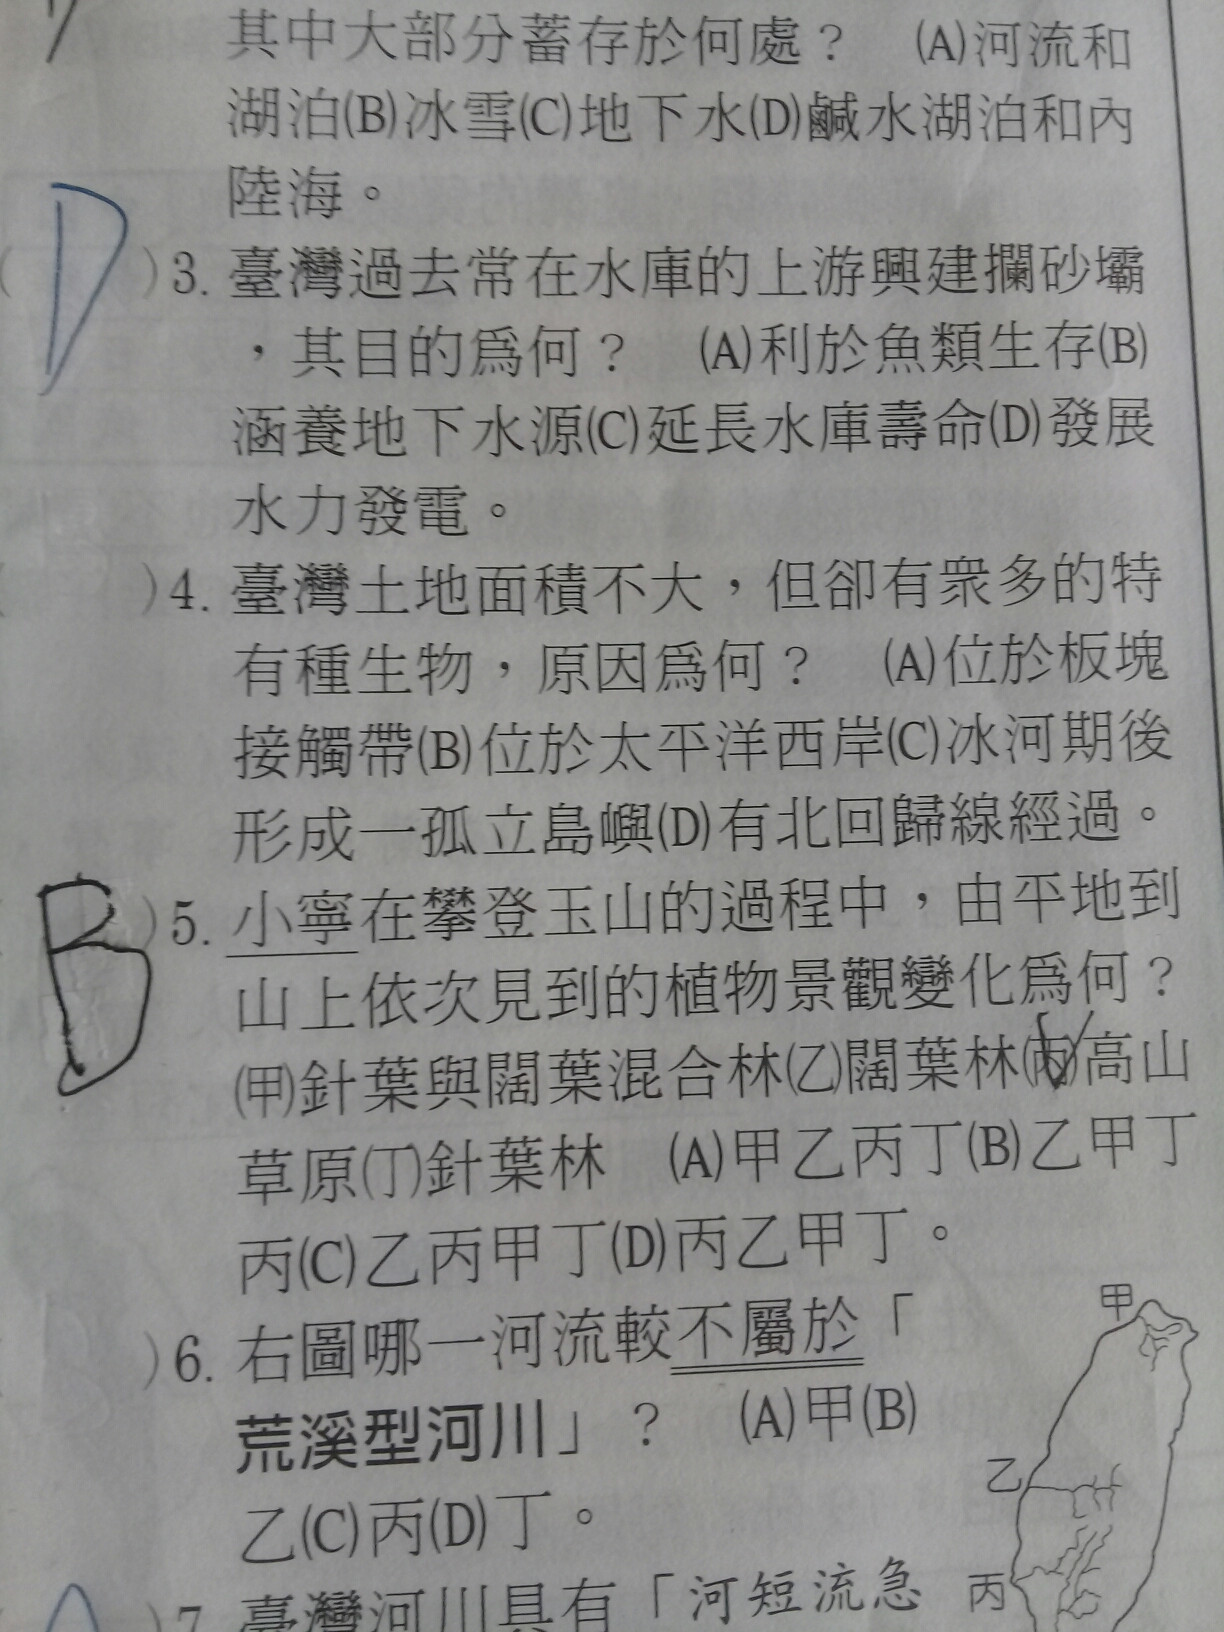 其中大部分蓄存於何處？　(A)河流和
湖泊(B)冰雪(C)地下水(D)鹹水湖泊和內
陸海。
D )3. 臺灣過去常在水庫的上游興建攔砂壩
，其目的爲何？　(A)利於魚類生存(B)
涵養地下水源(C)延長水庫壽命(D)發展
水力發電。
)4. 臺灣土地面積不大，但卻有眾多的特
有種生物，原因爲何？　(A)位於板塊
接觸帶(B)位於太平洋西岸(C)冰河期後
形成一孤立島嶼(D)有北回歸線經過。
B )5. 小寧在攀登玉山的過程中，由平地到
山上依次見到的植物景觀變化爲何？
(甲)針葉與闊葉混合林(乙)闊葉林(丙)高山
草原(丁)針葉林　(A)甲乙丙丁(B)乙甲丁
丙(C)乙丙甲丁(D)丙乙甲丁。
)6. 右圖哪一河流較不屬於「
荒溪型河川」？　(A)甲(B)
乙(C)丙(D)丁。
甲
乙
丙
)7. 臺灣河川具有「河短流急